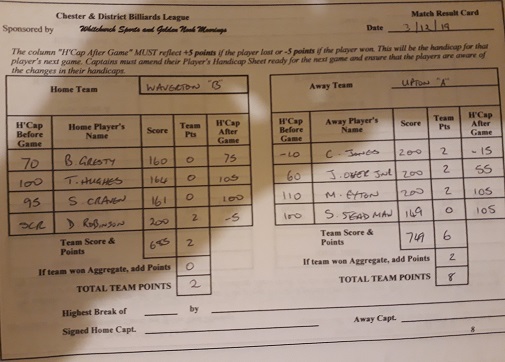 Chester & District Billiards League
Match Result Card
Sponsored by Whitchurch Sports and Golden Nook Moorings
Date 3/12/19
The column "H'Cap After Game" MUST reflect +5 points if the player lost or -5 points if the player won. This will be the handicap for that
player's next game. Captains must amend their Player's Handicap Sheet ready for the next game and ensure that the players are aware of
the changes in their handicaps.
Home Team WAVERTON "B"
H'Cap Before Game Home Player's Name Score Team Pts H'Cap After Game
70 B GRESTY 160 0 75
100 T. HUGHES 164 0 105
95 S. CRAVEN 161 0 100
SCR D ROBINSON 200 2 -5
Team Score & Points 685 2
If team won Aggregate, add Points 0
TOTAL TEAM POINTS 2
Away Team UPTON "A"
H'Cap Before Game Away Player's Name Score Team Pts H'Cap After Game
-10 C. JONES 200 2 -15
60 J. OVER JNR 200 2 55
110 M. EYTON 200 2 105
100 S. STEADMAN 149 0 105
Team Score & Points 749 6
If team won Aggregate, add Points 2
TOTAL TEAM POINTS 8
Highest Break of by
Signed Home Capt. Away Capt.
8